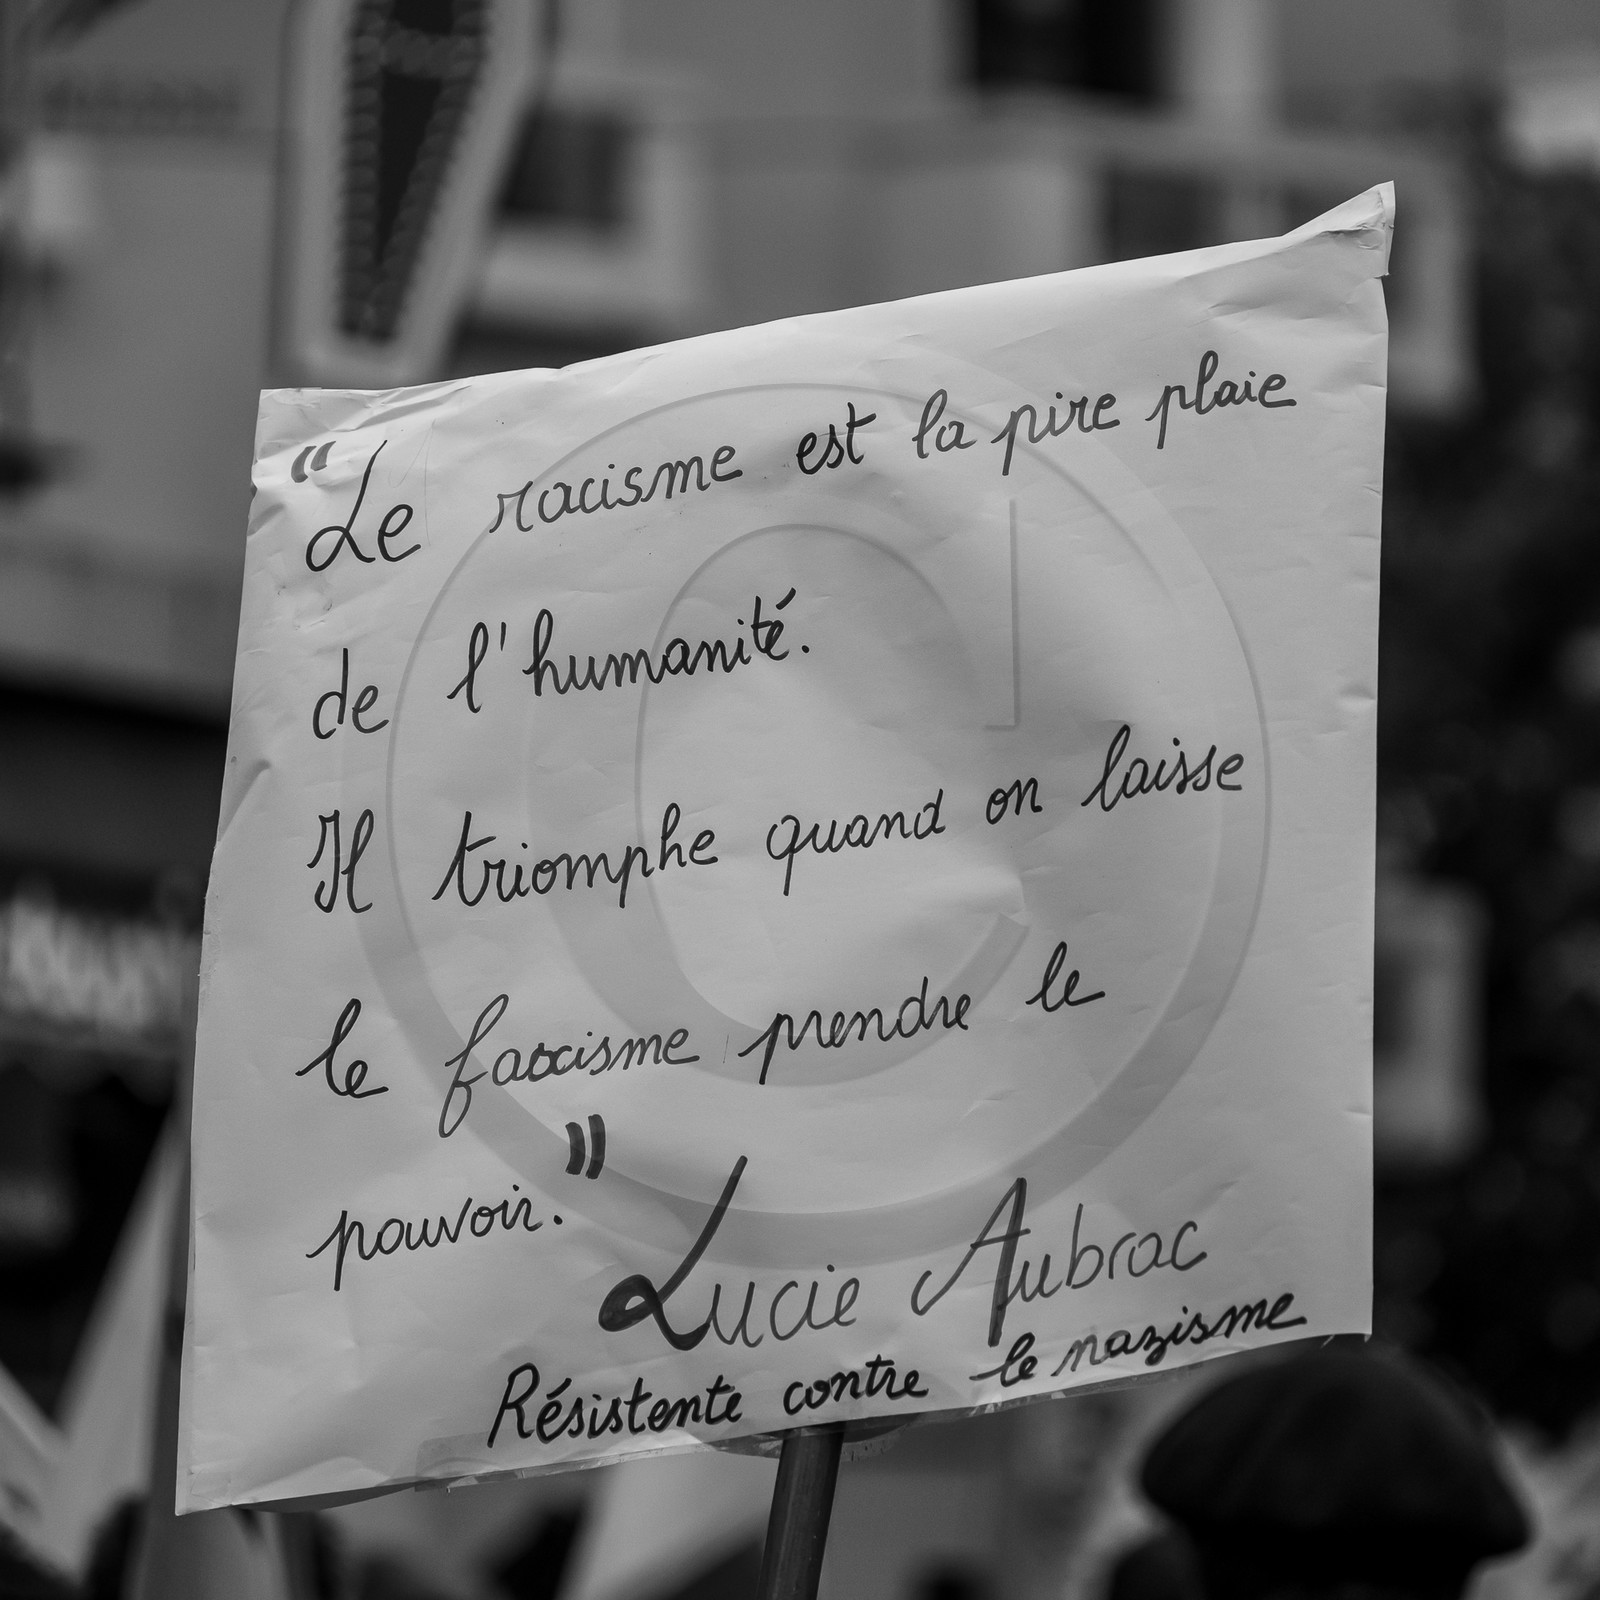 “Le racisme est la pire plaie
de l'humanité.
Il triomphe quand on laisse
le fascisme prendre le
pouvoir.”
Lucie Aubrac
Résistente contre le nazisme